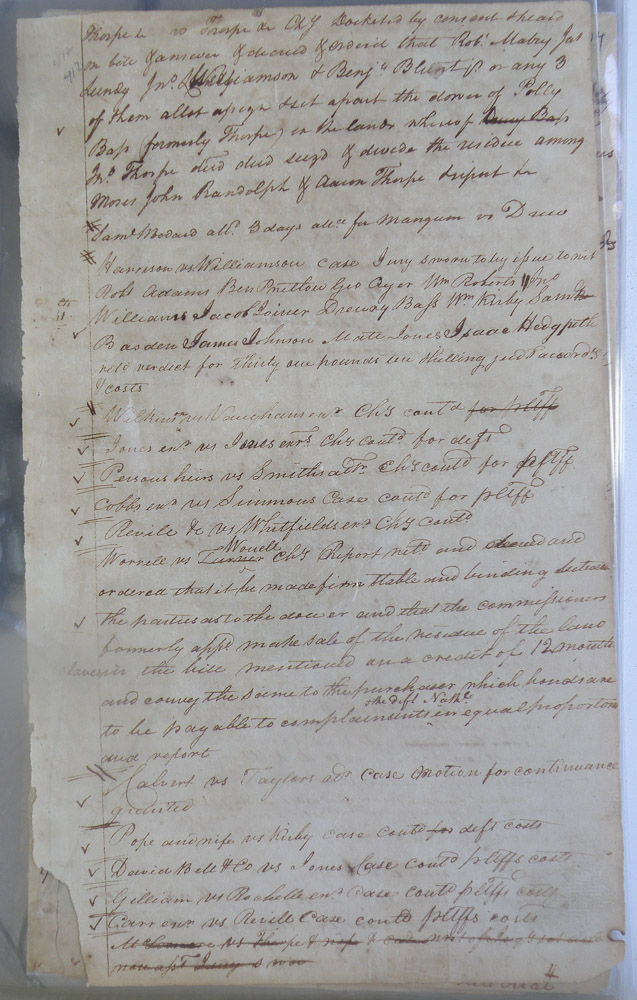 Thorpe &c vs Thorpe &c Chy Docketed by consent & heard
on bill & answer & decreed & ordered that Robt Mabry Jas
Lundy Jno Williamson & Benja Blunt or any 3
of them allot assign & set apart the dower of Polly
Bass (formerly Thorpe) in the lands whereof Bass
Jno Thorpe died seizd & divide the residue among
Moses John Randolph & Aaron Thorpe & report &c
Saml Woodard alld 3 days attce for Mangum vs Drew
Harrison vs Williamson case Jury sworn to try issue to wit
Robt Adams Ben Pretlow Geo Ayer Wm Roberts Jno
Williams Jacob Joiner Drewry Bass Wm Kirby Saml
Basden James Johnson Matt Jones Isaac Hedgpeth
retd verdict for Thirty one pounds one shilling
& costs
Wilkins vs Vaughans exr Chy contd for pltff
Jones exr vs Jones exrs Chy contd for deft
Persons heirs vs Smiths Chy contd for pltff
Cobbs exr vs Simmons Case contd for pltff
Revile &c vs Whitfields exr Chy contd
Worrell vs Worrell Chy Report retd and and
ordered that it be made firm stable and binding between
the parties as to the dower and that the commissioners
formerly appd make sale of the residue of the land
slaves in the bill mentioned on a credit of 12 months
and convey the same to the purchaser which bonds are
the deft
to be payable to complainants in equal proportions
and report
Calvert vs Taylors adr case motion for continuance
granted
Pope and wife vs Kirby case contd for defts costs
David Bell & Co vs Jones Case contd pltffs costs
Gilliam vs Rochelle exr Case contd pltffs costs
Carr exr vs Revill Case contd pltffs costs
vs Thorpe & wife
now apt Jury & wo